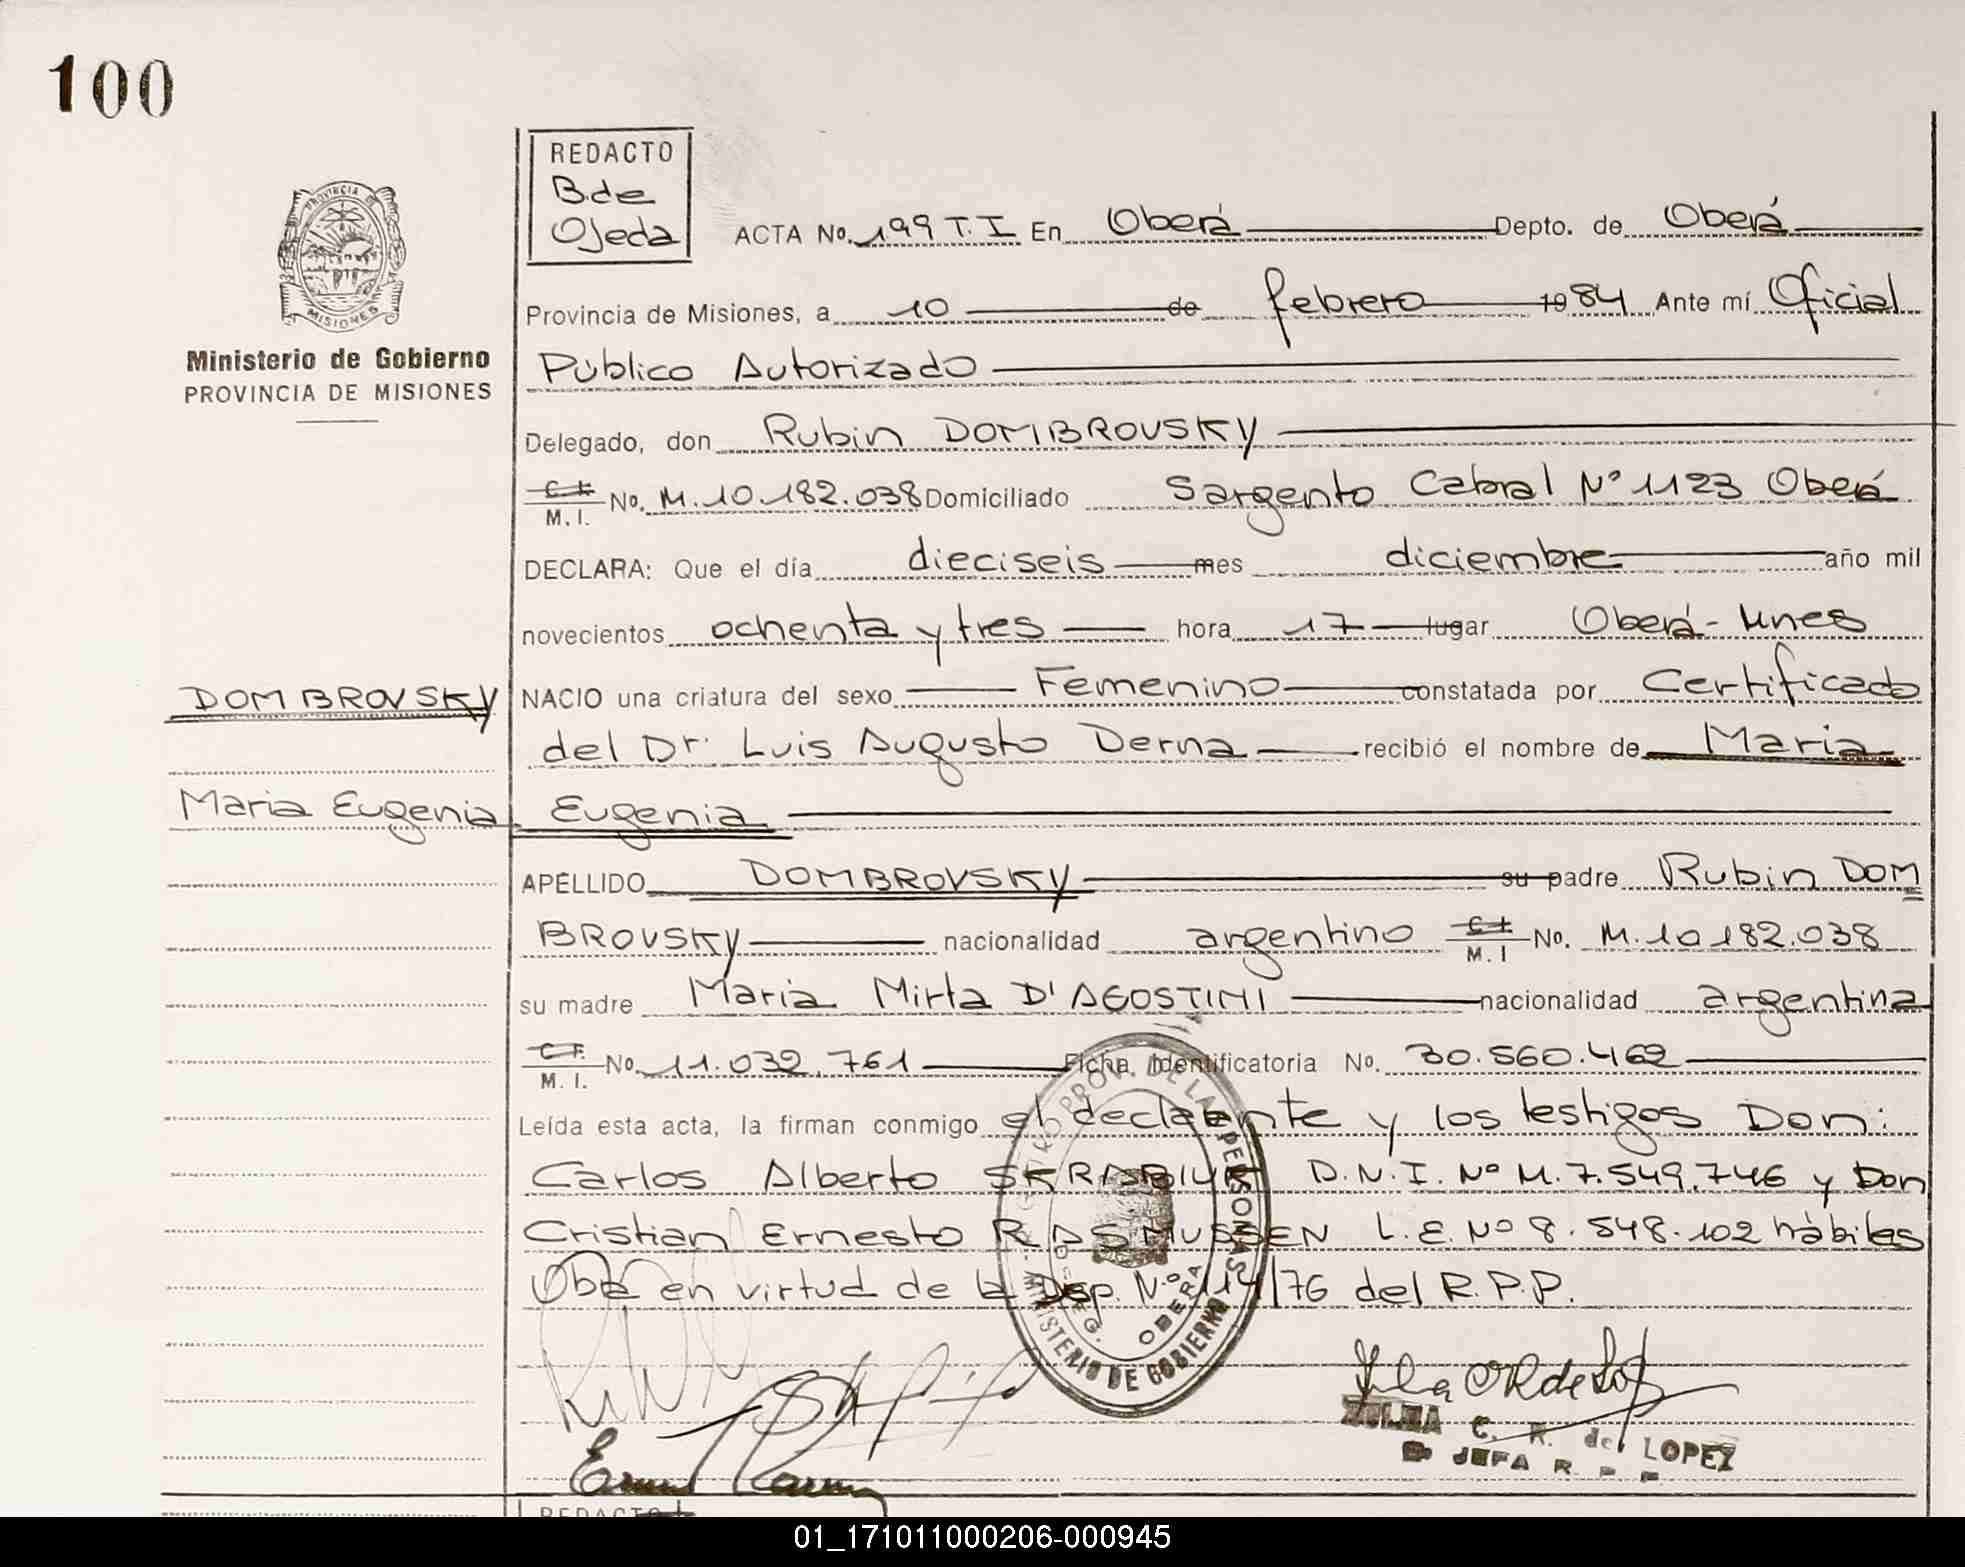 100
REDACTO
B.de
Ojeda
PROVINCIA DE
MISIONES
Ministerio de Gobierno
PROVINCIA DE MISIONES
ACTA No. 199 T.I En Oberá Depto. de Oberá
Provincia de Misiones, a 10 de febrero 1984 Ante mí Oficial
Publico Autorizado
Delegado, don Rubin DOMBROVSKY
C.I. M.I. No. M.10.182.038 Domiciliado Sargento Cabral Nº 1123 Oberá
DECLARA: Que el día dieciseis mes diciembre año mil
novecientos ochenta y tres hora 17 lugar Oberá-Mnes
DOMBROVSKY
NACIO una criatura del sexo Femenino constatada por Certificado
del Dr. Luis Augusto Derna recibió el nombre de Maria
Maria Eugenia
Eugenia
APELLIDO DOMBROVSKY su padre Rubin DOM
BROVSKY nacionalidad argentino C.I. M.I No. M.10.182.038
su madre Maria Mirta D'AGOSTINI nacionalidad argentina
C.I. M.I. No. 11.032.761 Ficha Identificatoria No. 30.560.462
Leída esta acta, la firman conmigo el declarante y los testigos Don:
Carlos Alberto SKRABIUK D.N.I. Nº M.7.549.746 y Don
Cristian Ernesto RASMUSSEN L.E. Nº 8.548.102 hàbiles
en virtud de la Disp. Nº 114/76 del R.P.P.
PROV. DE LAS PERSONAS
MINISTERIO DE GOBIERNO
OBERA
ZULMA C. R. de LOPEZ
JEFA R P P
REDACTO
01_171011000206-000945